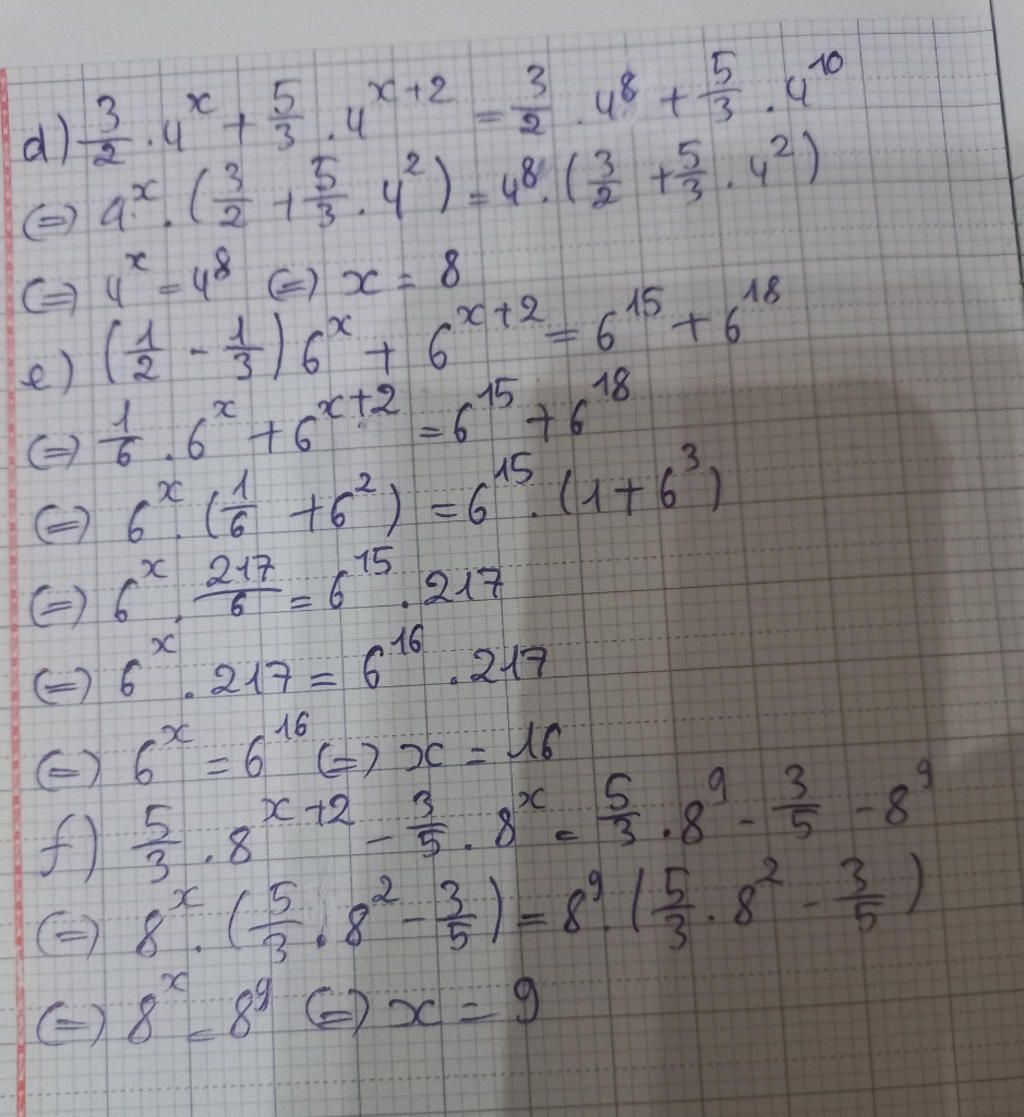 d) 3/2 . 4^x + 5/3 . 4^(x+2) = 3/2 . 4^8 + 5/3 . 4^10
(=) 4^x . (3/2 + 5/3 . 4^2) = 4^8 . (3/2 + 5/3 . 4^2)
(=) 4^x = 4^8 (=) x = 8
e) (1/2 - 1/3) 6^x + 6^(x+2) = 6^15 + 6^18
(=) 1/6 . 6^x + 6^(x+2) = 6^15 + 6^18
(=) 6^x . (1/6 + 6^2) = 6^15 . (1 + 6^3)
(=) 6^x . 217/6 = 6^15 . 217
(=) 6^x . 217 = 6^16 . 217
(=) 6^x = 6^16 (=) x = 16
f) 5/3 . 8^(x+2) - 3/5 . 8^x = 5/3 . 8^9 - 3/5 - 8^9
(=) 8^x . (5/3 . 8^2 - 3/5) = 8^9 . (5/3 . 8^2 - 3/5)
(=) 8^x = 8^9 (=) x = 9